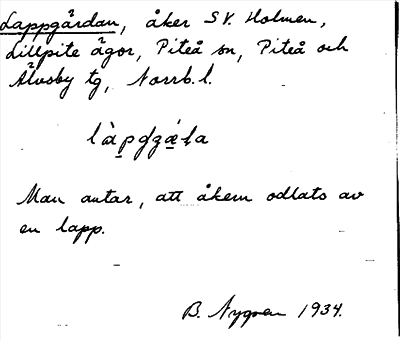 Lappgårdan, åker SV. Holmen,
Lillpite ägor, Piteå sn, Piteå och
Älvsby tg, Norrb. l.
Man antar, att åkern odlats av
en lapp.
B. Nygren 1934.